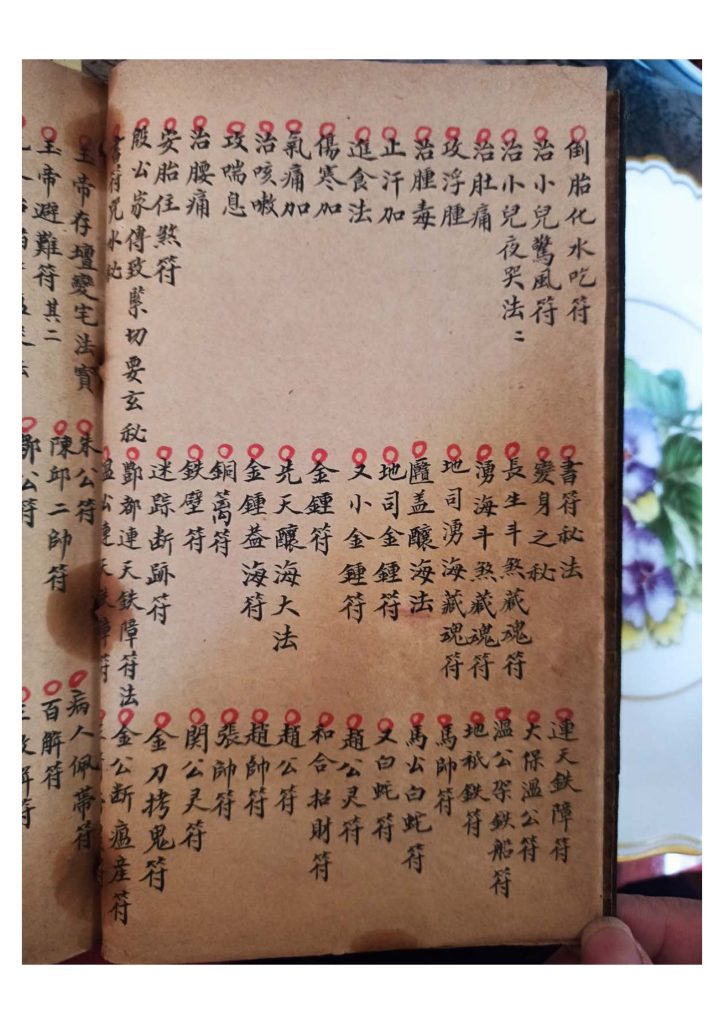 倒胎化水吃符
治小兒驚風符
治小兒夜哭法二
治肚痛
攻浮腫
治腫毒
止汗加
進食法
傷寒加
氣痛加
治咳嗽
攻喘息
治腰痛
安胎住煞符
殷公家傳致緊切要玄秘
書符咒水訣
書符秘法
變身之秘
長生斗煞藏魂符
湧海斗煞藏魂符
地司湧海藏魂符
蓋釀海法
地司金鍾符
又小金鍾符
金鍾符
先天釀海大法
金鍾益海符
銅篱符
鉄壁符
迷踪断跡符
酆都連天鉄障符法
温公連天鉄障符
連天鉄障符
大保溫公符
溫公架鉄船符
地祇鉄符
馬帥符
馬公白蛇符
又白蛇符
趙公灵符
和合招財符
趙公符
趙帥符
張帥符
関公灵符
金刀拷鬼符
金公断瘟産符
玉帝存壇變宅法寶
玉帝避難符其二
朱公符
陳邱二帥符
鄧公符
病人佩帶符
百解符